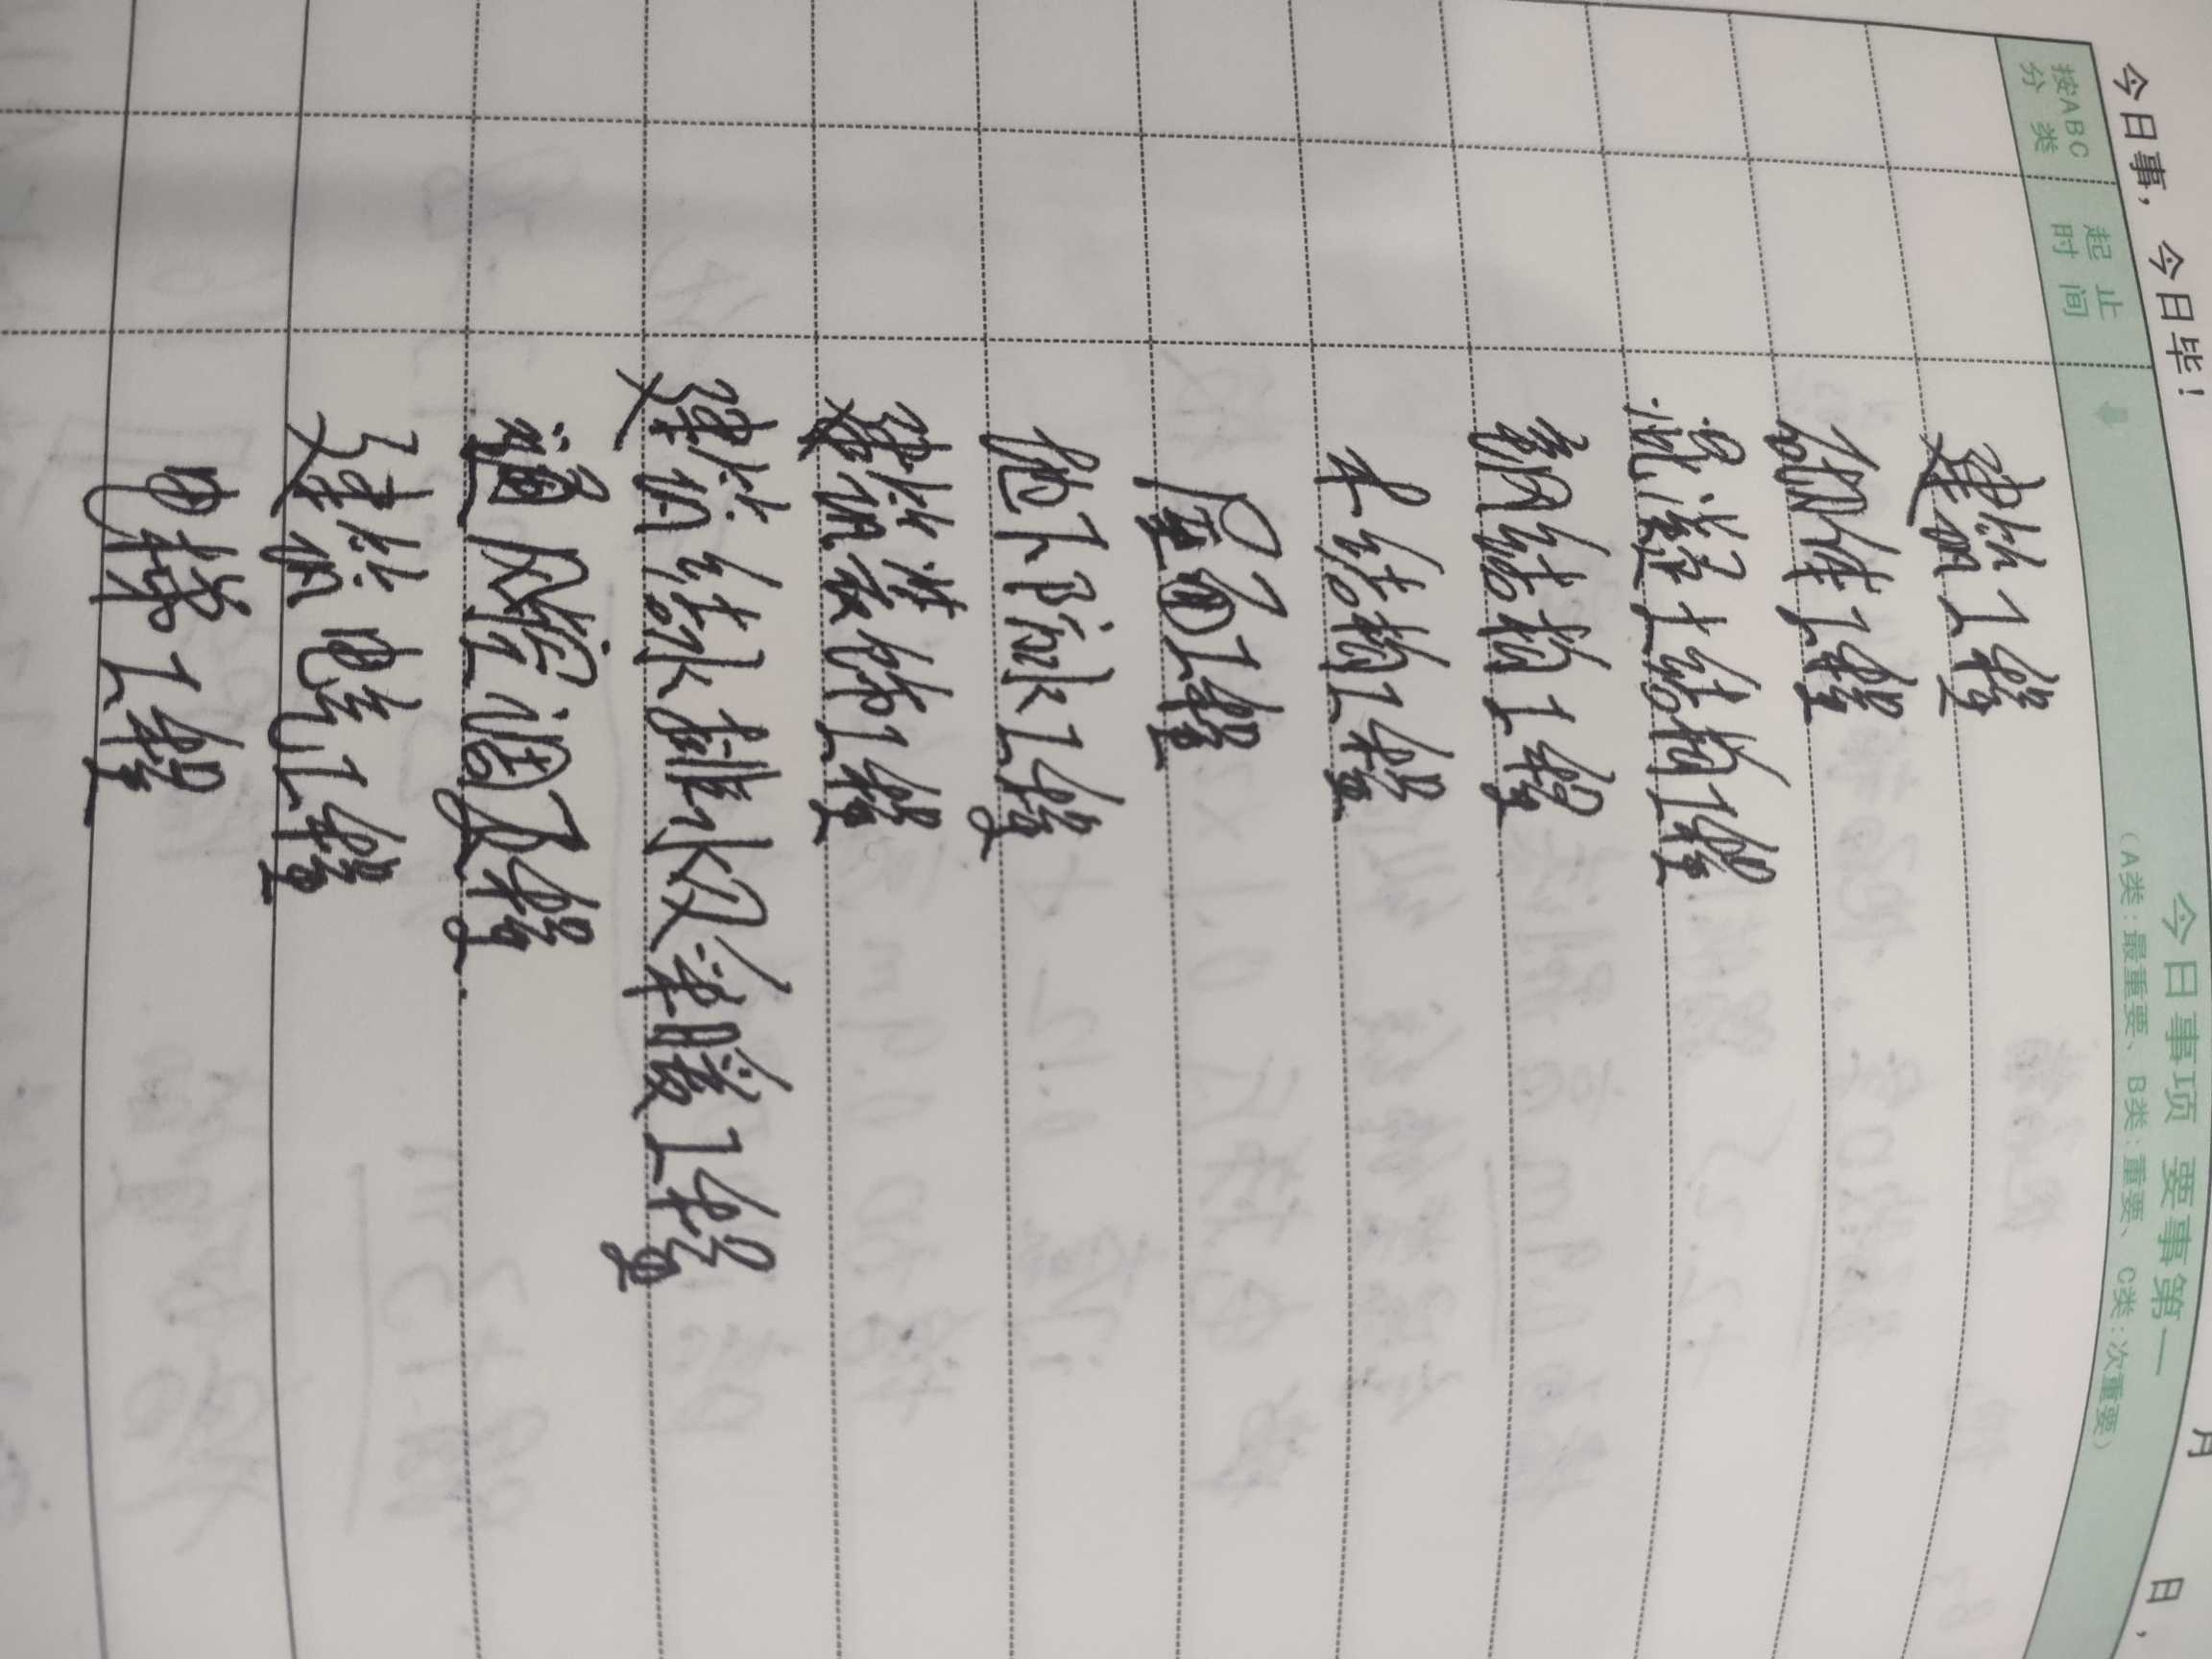 今日事，今日毕！
月 日，
今日事项 要事第一
按ABC分类
起止时间
（A类：最重要、B类：重要、C类：次重要）
建筑工程
砌体工程
混凝土结构工程
钢结构工程
木结构工程
屋面工程
地下防水工程
建筑装饰工程
建筑给水排水及采暖工程
通风空调工程
建筑电气工程
电梯工程